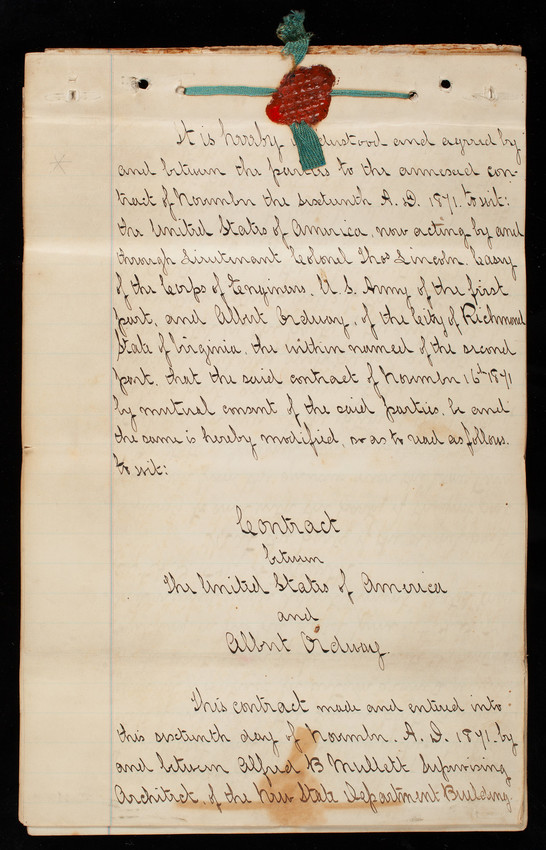 It is hereby understood and agreed by
and between the parties to the annexed con-
tract of November the sixteenth A.D. 1871. to wit:
the United States of America, now acting by and
through Lieutenant Colonel Thos Lincoln Casey
of the Corps of Engineers, U.S. Army of the first
part, and Albert Ordway, of the City of Richmond
State of Virginia, the within named of the second
part, that the said contract of November 16th 1871
by mutual consent of the said parties, be and
the same is hereby modified, so as to read as follows.
to wit:
Contract
between
The United States of America
and
Albert Ordway.
This contract made and entered into
this sixteenth day of November A.D. 1871. by
and between Alfred B Mullett Supervising
Architect, of the New State Department Building.